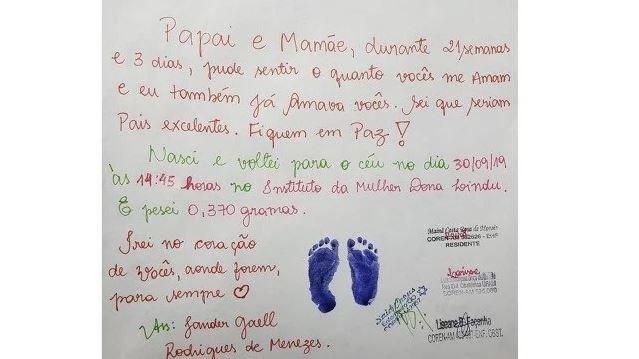 Papai e Mamãe, durante 21 semanas
e 3 dias, pude sentir o quanto vocês me Amam
e eu também já Amava vocês. Sei que seriam
Pais excelentes. Fiquem em Paz!
Nasci e voltei para o céu no dia 30/09/19
às 14:45 horas no Instituto da Mulher Dona Lindu.
E pesei 0,370 gramas.
Irei no coração
de vocês, aonde forem,
para sempre ♡
Ass: Sander Gaell
Rodrigues de Menezes.
COREN-AM
RESIDENTE
Larisse
COREN-AM
Façanha
COREN-AM